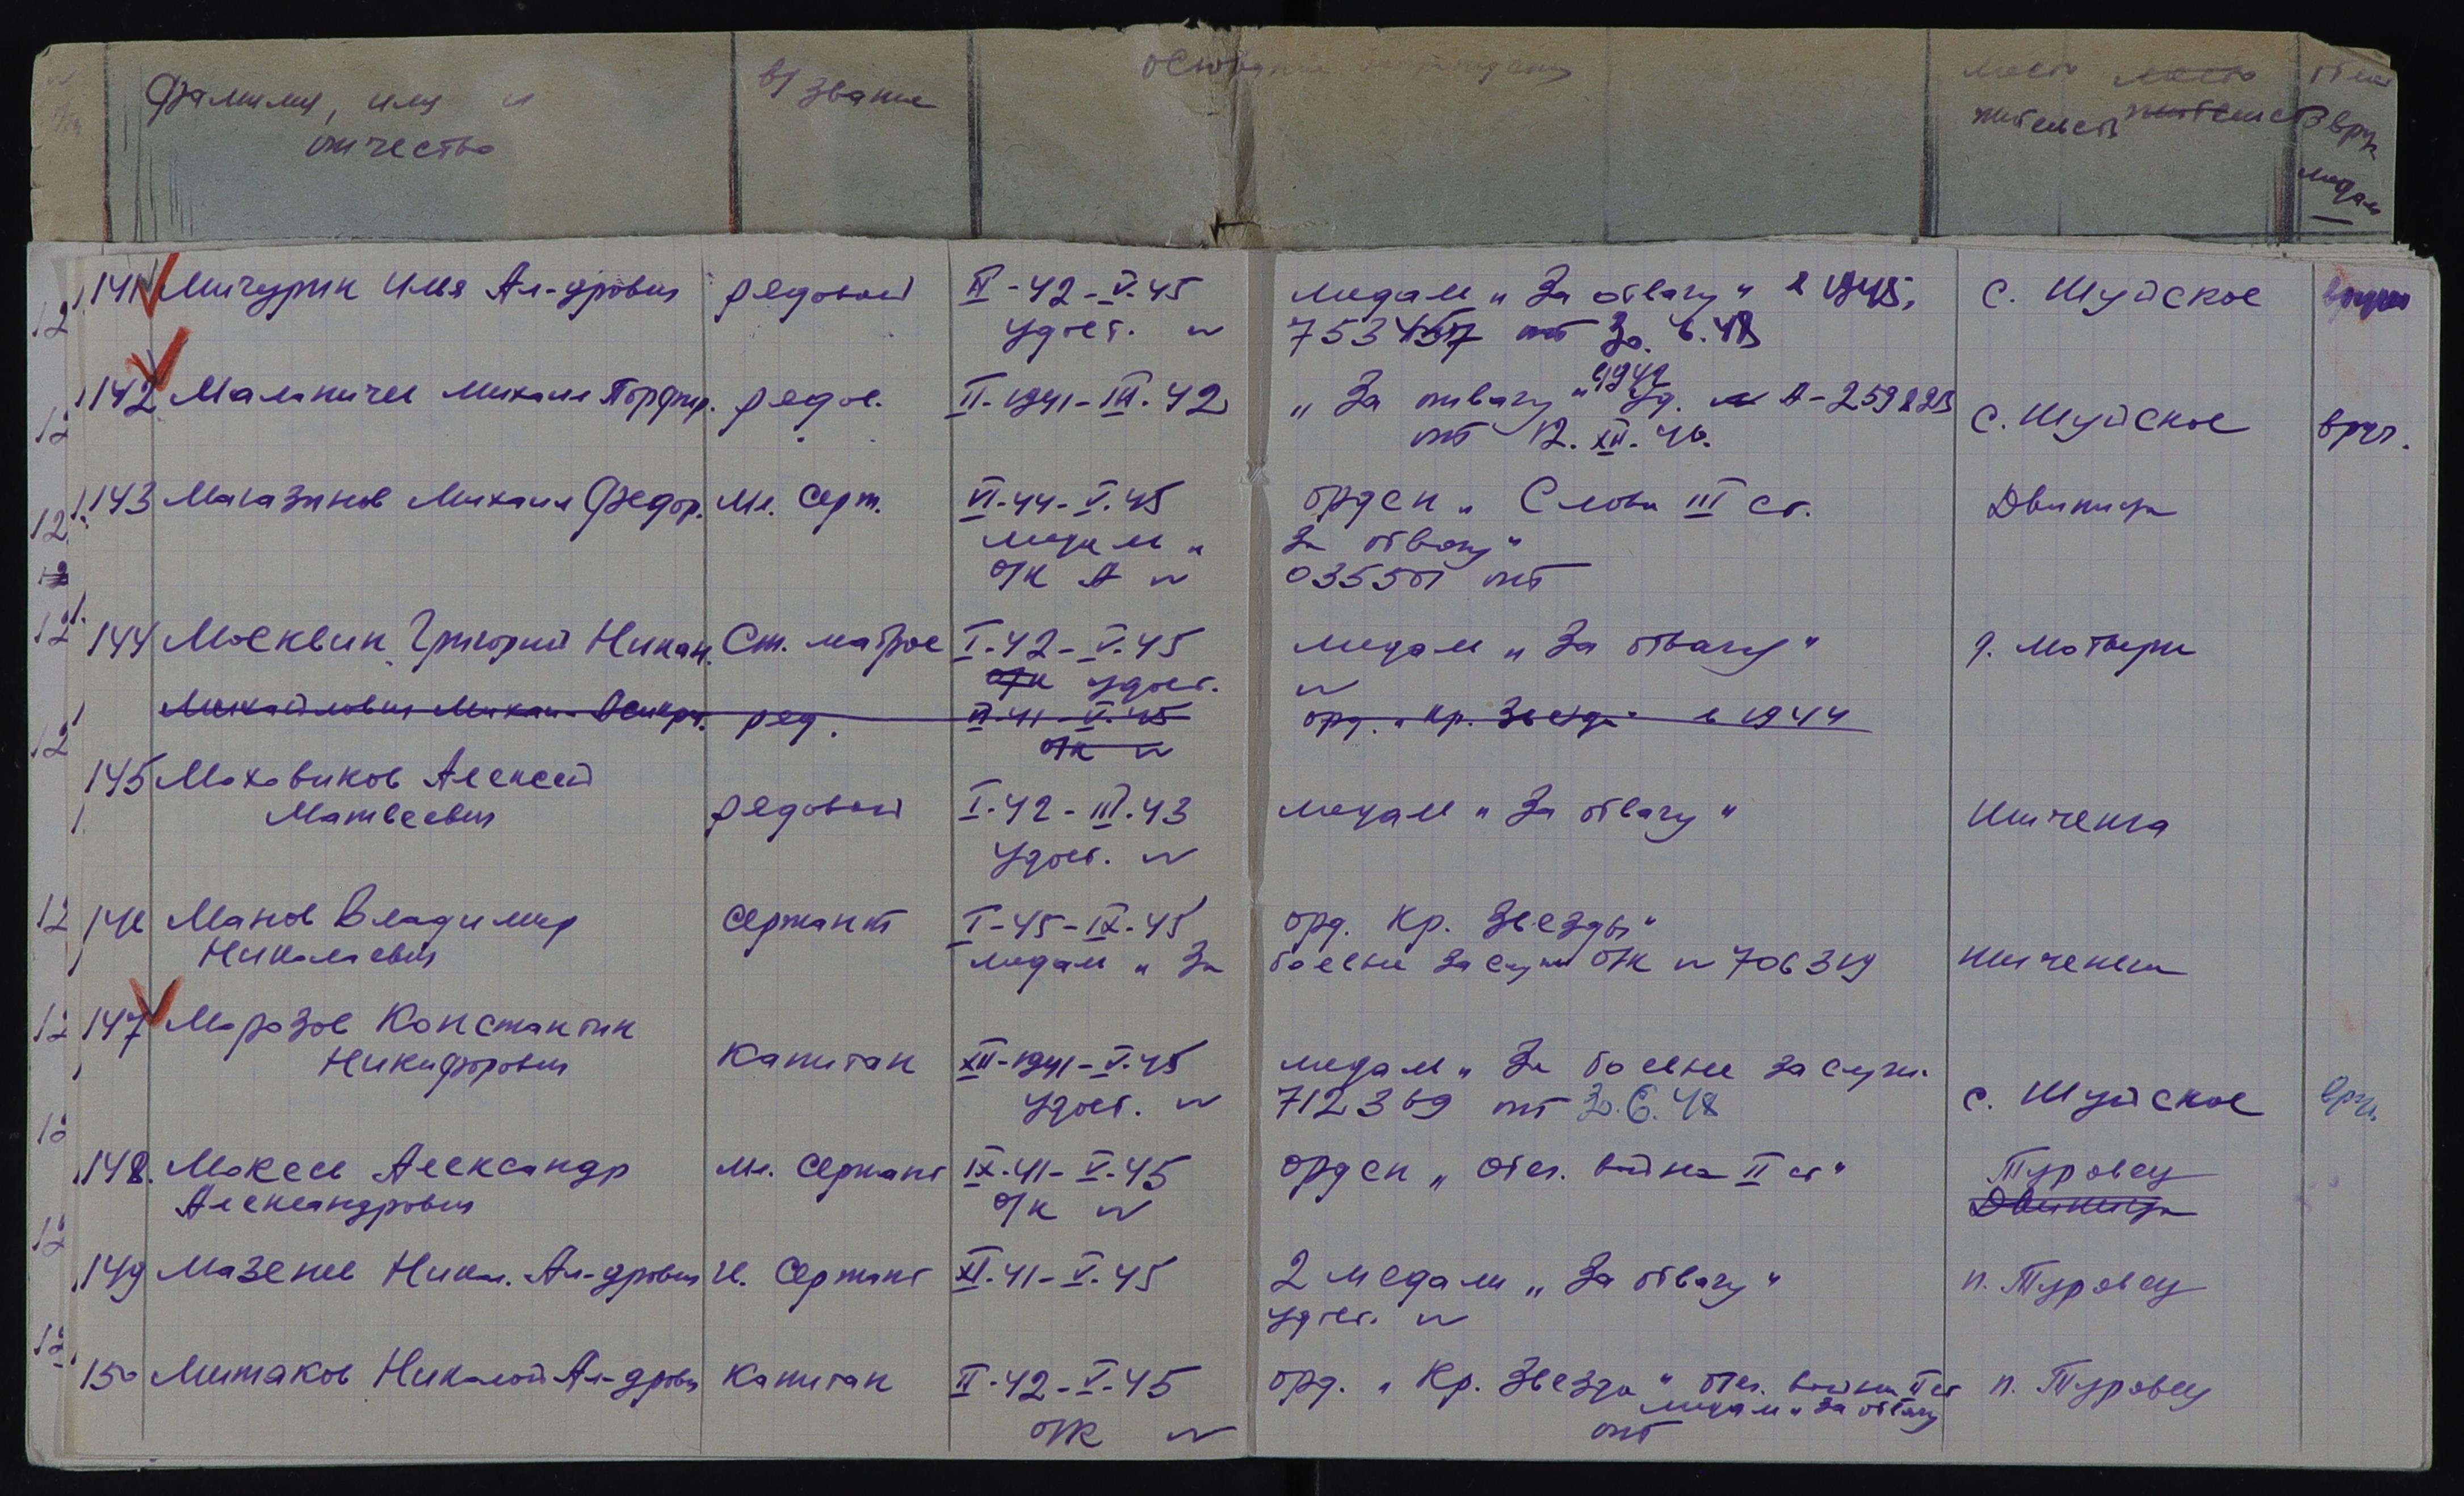 Фамилия, имя и
отчество
в/звание
основания награждения
место
жительств
вруч
медал
141 Мичурин Илья Ал-дрович рядовой II-42-V-45 медаль "За отвагу" в 1945, с. Шуйское вручен
удост. № 753457 от 30.6.48
142 Малыгичев Михаил Порфир. рядов. II-1941-III-42 "За отвагу" в 1942 уд. № А-259223 с. Шуйское вруч.
от 12.XII.46.
143 Магазинов Михаил Федор. Мл. серж. VI-44-V-45 орден "Славы III ст. Двиница
медаль "За отвагу"
о/к А № 035501 от
144 Москвин Григорий Никан. Ст. матрос I-42-V-45 медаль "За отвагу" д. Мотыри
о/к удост. №
Михайлович Михаил ряд. II-41-V-45 орд. "Кр. Звезда" в 1944
о/к №
145 Маховиков Алексей
Матвеевич рядовой I-42-III-43 медаль "За отвагу" Шиченга
удост. №
146 Манов Владимир сержант I-45-IX-45 орд. Кр. Звезды"
Николаевич медаль "За боевые заслуги о/к № 706319 Шиченга
147 Морозов Константин
Никифорович капитан XII-1941-V-45 медаль "За боевые заслуги.
удост. № 712369 от 30.6.48 с. Шуйское вруч.
148. Мокеев Александр Мл. Сержант IX-41-V-45 орден "Отеч. война II ст" Туровец
Александрович о/к № Двиница
149 Мазенев Никол. Ал-дрович Сержант XI-41-V-45 2 медали "За отвагу" п. Туровец
удост. №
150 Митаков Николай Ал-дрович Капитан II-42-V-45 орд. "Кр. Звезда" отеч. война II ст п. Туровец
медаль "За отвагу
о/к № от